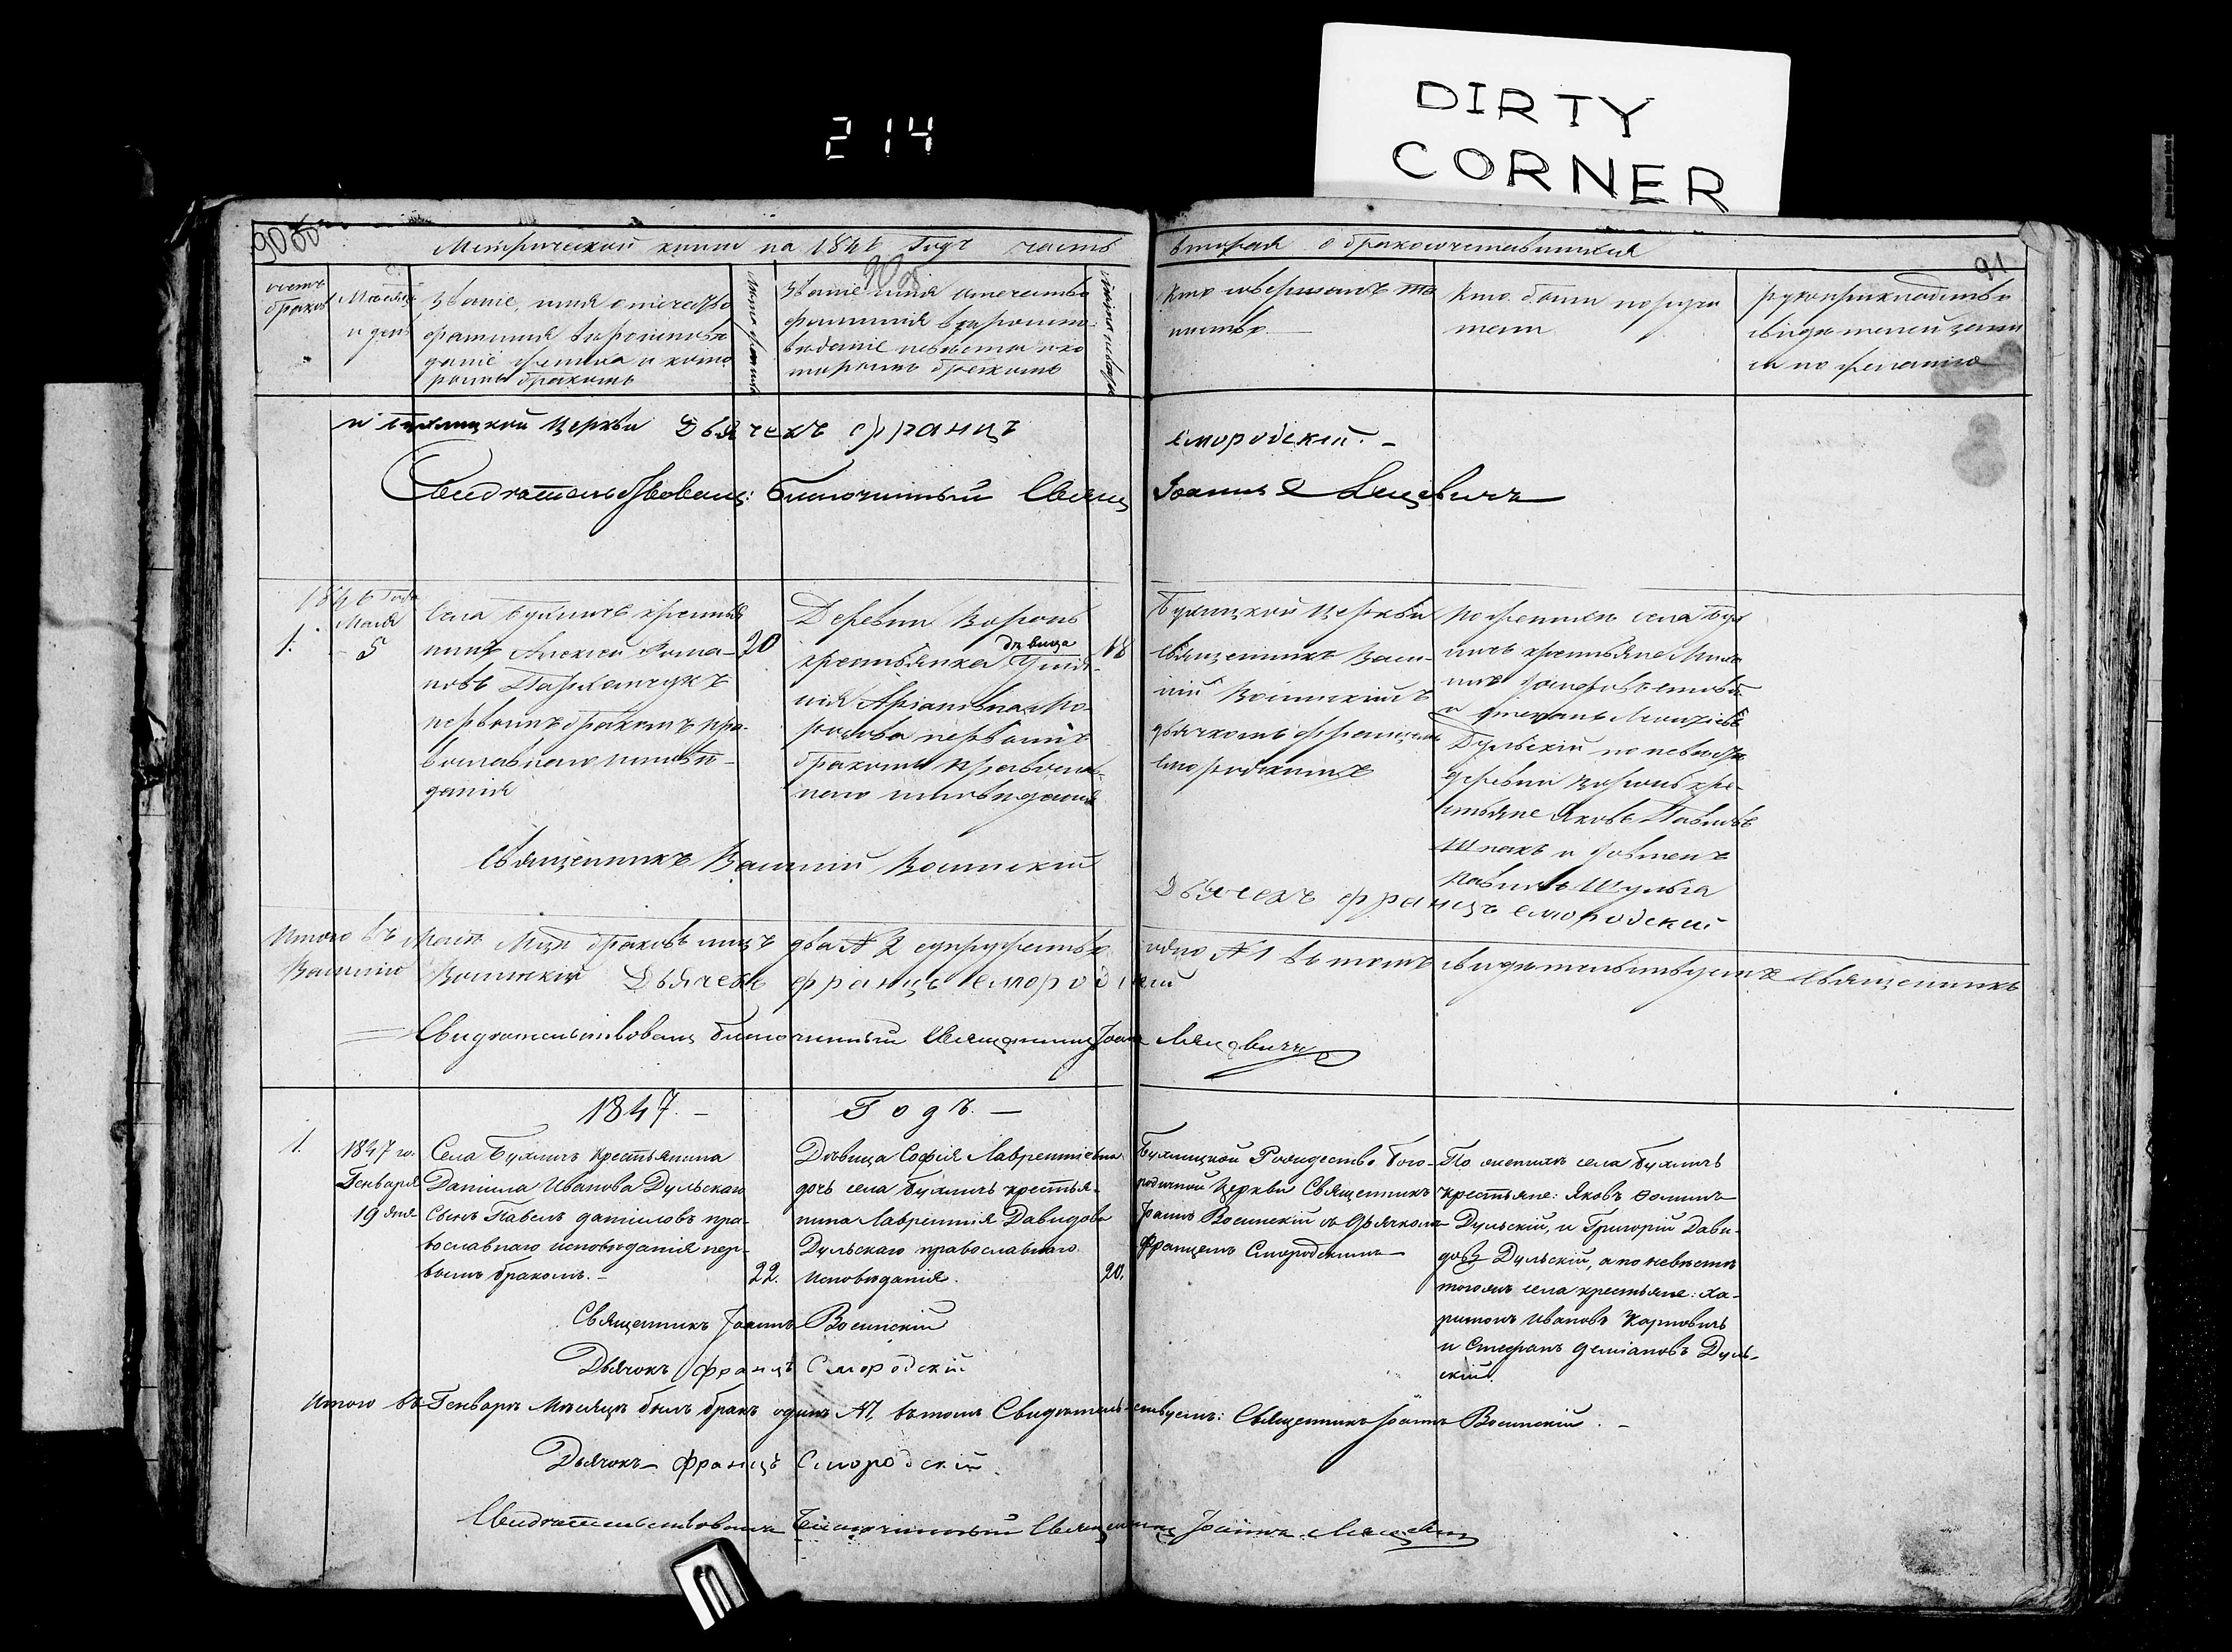 214
DIRTY
CORNER
91
Метрической книги на 1846 Годъ часть вторая о бракосочетавшихся
счетъ браковъ
Месяцъ и день
Званіе, имя отечество
фамилия вероиспове
даніе жениха и кото
рымъ бракомъ
Званіе имя отечество
фамилія вероиспо
веданіе невесты и ко
торымъ бракомъ
Кто совершалъ та
инство
Кто были поручи
тели
рукоприкладство
свидетелей записи
по желанію
Церкви Дьячекъ Францъ Смородскій.-
Свидетельствовалъ: благочинный Свящ Іоаннъ
1846 Года
Мая
1. 5
Села Бухличъ крестья
нинъ Алексей Рома-
новъ
первымъ бракомъ пра-
вославнаго испове-
данія
20
Деревни Воронь
девица
крестьянка
первымъ
бракомъ православ-
наго исповеданія
18
Бухлицкой Церкви
священникъ Васи-
лій Воинскій съ
дьячкомъ Францемъ
Смородскимъ
По женихе села Бух
личъ крестьяне
Дульскій по невесте
деревни Воронь кре-
стьяне Яковъ Павловъ
Шпакъ и
Павловъ Шульга
Священникъ Василій Воинскій
Дьячекъ Францъ Смородскій
Итого въ Мае Мцъ браковъ лицъ два № 2 супружествъ одно № 1 въ томъ свидетельствуетъ Священникъ
Василій Воинскій Дьячекъ Францъ Смородскій
Свидетельствовалъ благочинный Священникъ Іоаннъ
1847.- Годъ.-
1.
1847 го.
Генваря
19 дня
Села Бухличъ Крестьянина
Даніила Иванова Дульскаго
Сынъ Павелъ даніиловъ пра-
вославнаго исповѣданія пер-
вымъ бракомъ.-
22.
Дѣвица Софія Лаврентіевна
дочь села Бухличъ крестья-
нина Лаврентія Давидова
Дульскаго православнаго
исповѣданія.
20.
Бухлицкой Рождество Бого-
родичной Церкви Священникъ
Іоаннъ Воинскій съ Дьячкомъ
Францемъ Смородскимъ
По женихѣ села Бухличъ
крестьяне: Яковъ Ѳоминъ
Дульскій, и Григорій Дави-
довъ Дульскій, а по невѣстѣ
тогожъ села крестьяне: Ха-
ритонъ Ивановъ Карповичъ
и Стефанъ Деміановъ Дуль-
скій.
Священникъ Іоаннъ Воинскій
Дьячокъ Францъ Смородскій
Итого въ Генварѣ Мѣсяцѣ былъ бракъ одинъ №1. въ томъ Свидѣтельствуетъ: Священникъ Іоаннъ Воинскій.-
Дьячокъ- Францъ Смородскій.
Свидетельствовалъ Благочинный Священникъ Іоаннъ